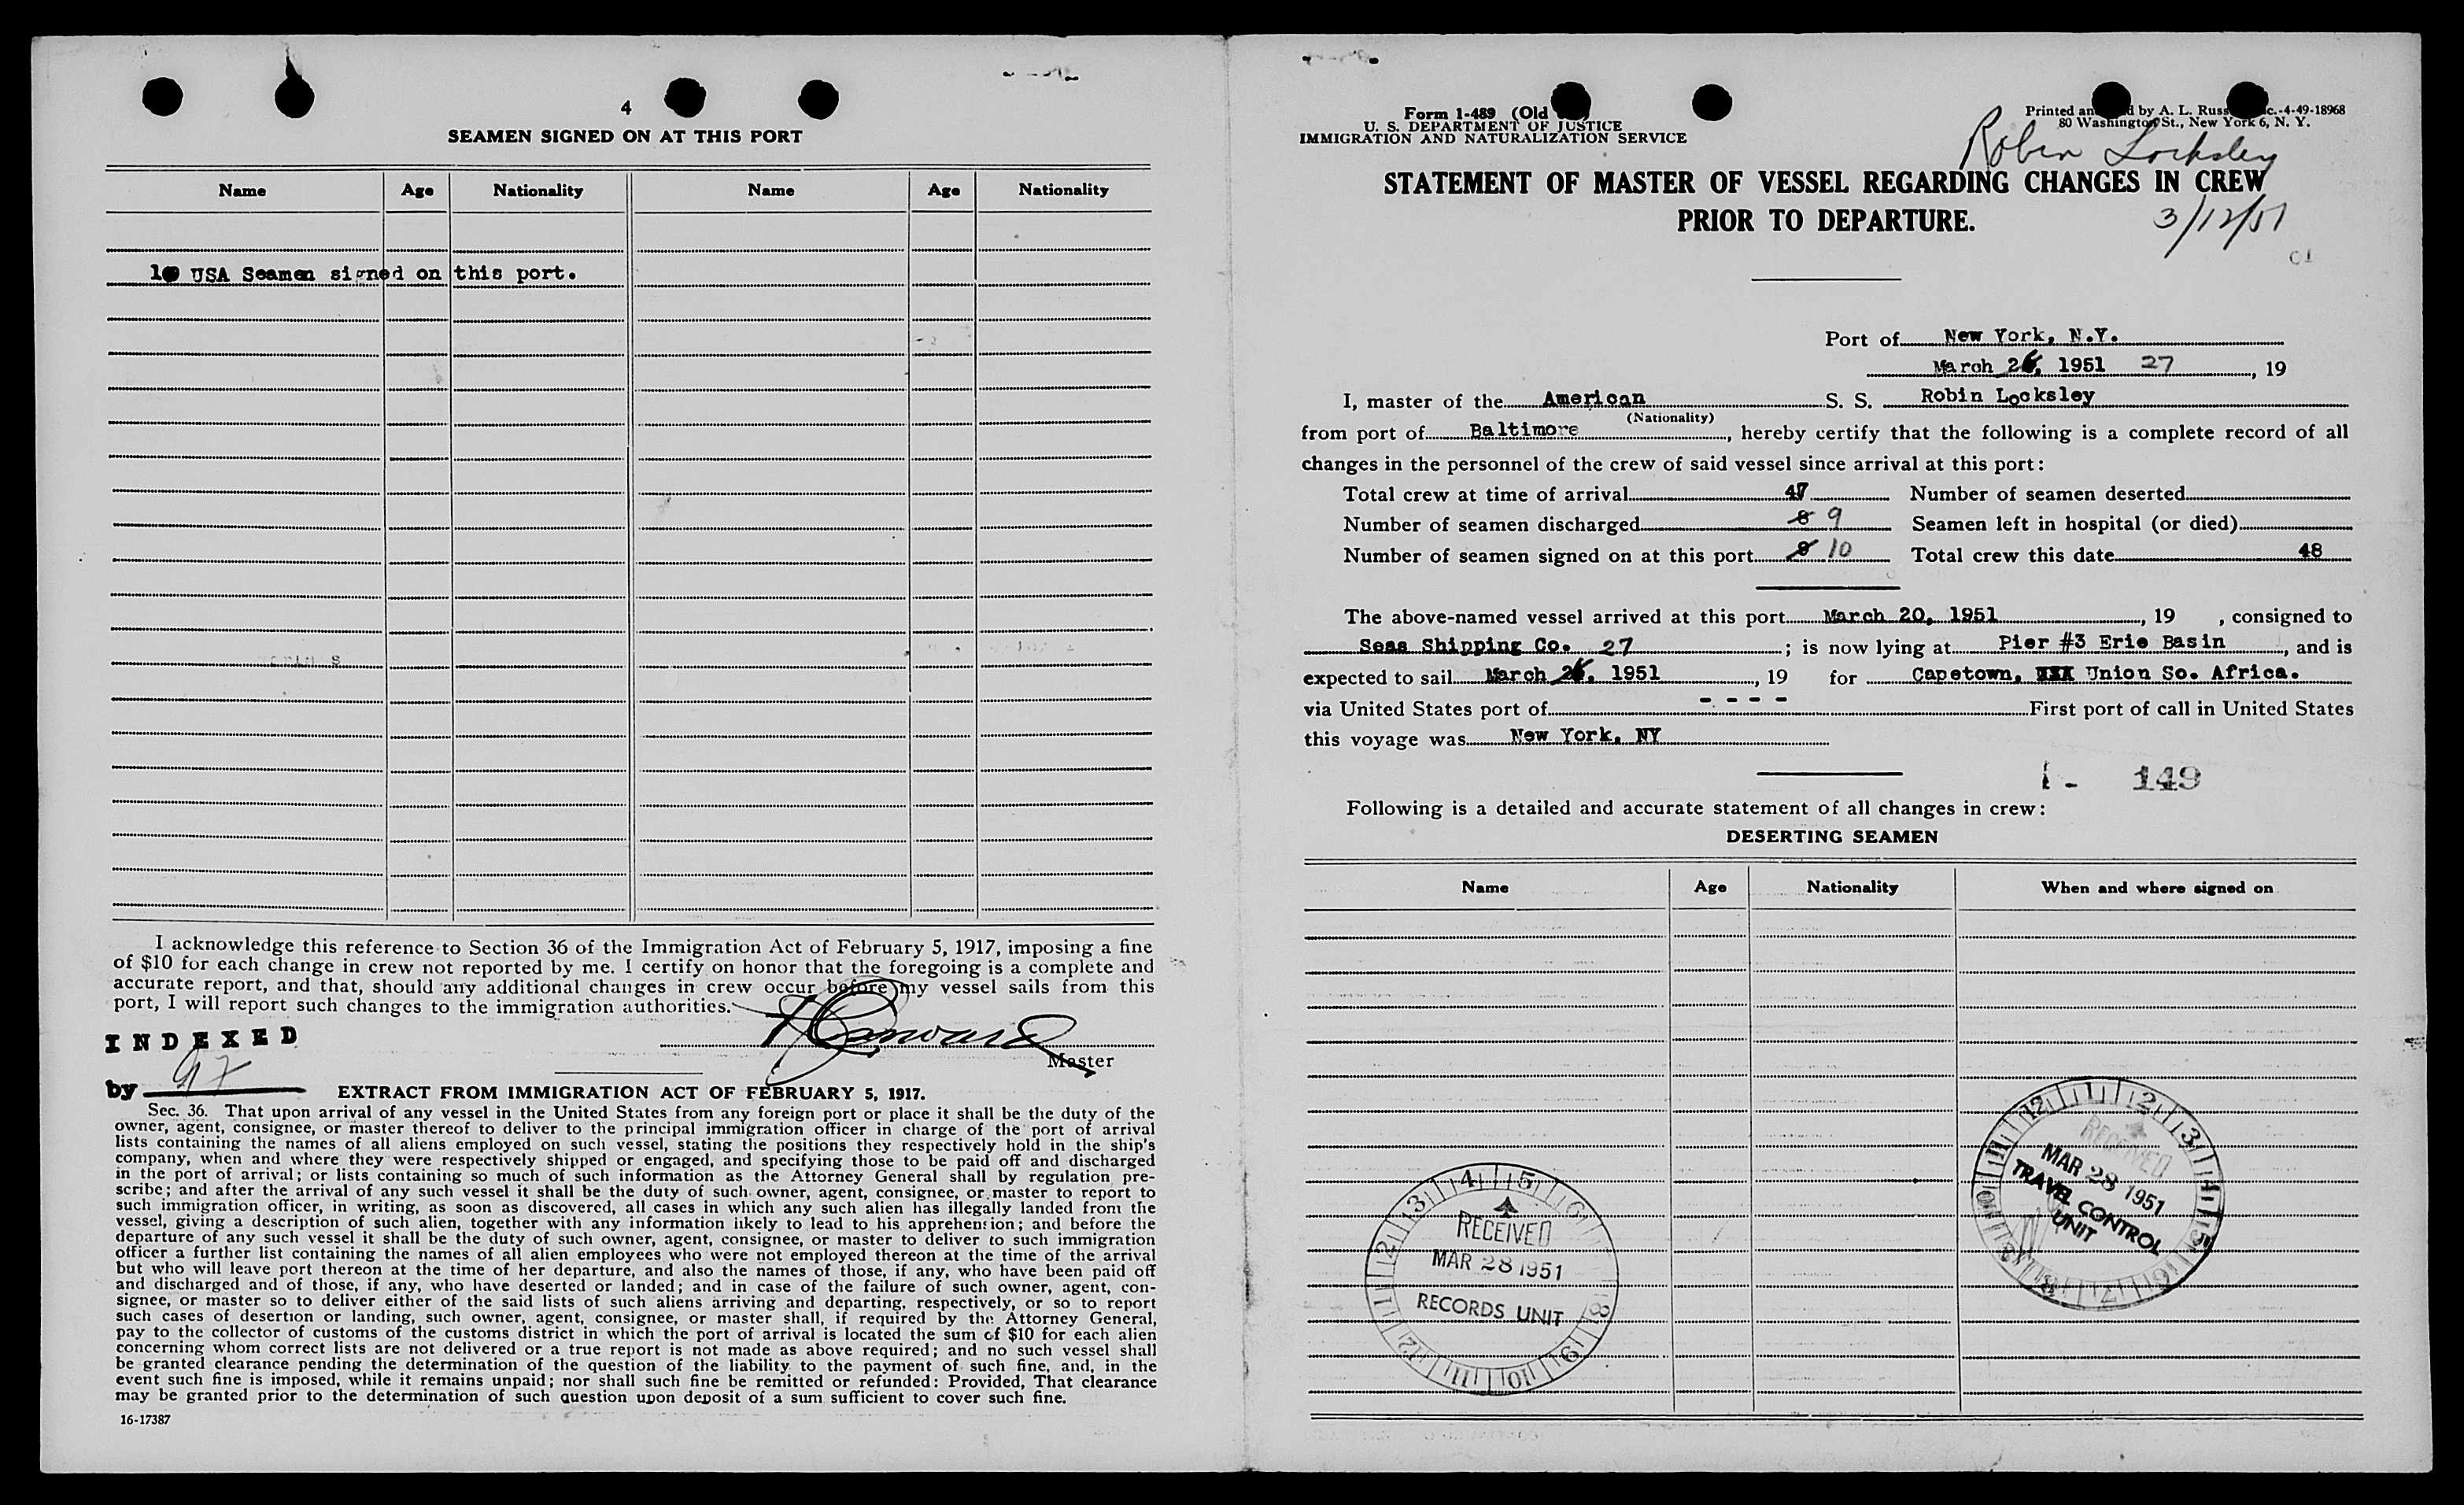 4
SEAMEN SIGNED ON AT THIS PORT
Name Age Nationality Name Age Nationality
10 USA Seamen signed on this port.
I acknowledge this reference to Section 36 of the Immigration Act of February 5, 1917, imposing a fine
of $10 for each change in crew not reported by me. I certify on honor that the foregoing is a complete and
accurate report, and that, should any additional changes in crew occur before my vessel sails from this
port, I will report such changes to the immigration authorities.
INDEXED
Master
by
EXTRACT FROM IMMIGRATION ACT OF FEBRUARY 5, 1917.
Sec. 36. That upon arrival of any vessel in the United States from any foreign port or place it shall be the duty of the
owner, agent, consignee, or master thereof to deliver to the principal immigration officer in charge of the port of arrival
lists containing the names of all aliens employed on such vessel, stating the positions they respectively hold in the ship's
company, when and where they were respectively shipped or engaged, and specifying those to be paid off and discharged
in the port of arrival; or lists containing so much of such information as the Attorney General shall by regulation pre-
scribe; and after the arrival of any such vessel it shall be the duty of such owner, agent, consignee, or master to report to
such immigration officer, in writing, as soon as discovered, all cases in which any such alien has illegally landed from the
vessel, giving a description of such alien, together with any information likely to lead to his apprehension; and before the
departure of any such vessel it shall be the duty of such owner, agent, consignee, or master to deliver to such immigration
officer a further list containing the names of all alien employees who were not employed thereon at the time of the arrival
but who will leave port thereon at the time of her departure, and also the names of those, if any, who have been paid off
and discharged and of those, if any, who have deserted or landed; and in case of the failure of such owner, agent, con-
signee, or master so to deliver either of the said lists of such aliens arriving and departing, respectively, or so to report
such cases of desertion or landing, such owner, agent, consignee, or master shall, if required by the Attorney General,
pay to the collector of customs of the customs district in which the port of arrival is located the sum of $10 for each alien
concerning whom correct lists are not delivered or a true report is not made as above required; and no such vessel shall
be granted clearance pending the determination of the question of the liability to the payment of such fine, and, in the
event such fine is imposed, while it remains unpaid; nor shall such fine be remitted or refunded: Provided, That clearance
may be granted prior to the determination of such question upon deposit of a sum sufficient to cover such fine.
16-17387
Form I-489 (Old
U. S. DEPARTMENT OF JUSTICE
IMMIGRATION AND NATURALIZATION SERVICE
Printed an d by A. L. Russ c.-4-49-18968
80 Washington St., New York 6, N. Y.
Robin Locksley
STATEMENT OF MASTER OF VESSEL REGARDING CHANGES IN CREW
PRIOR TO DEPARTURE.
3/12/51
C1
Port of New York, N.Y.
March 26, 1951 27, 19
I, master of the American S. S. Robin Locksley
(Nationality)
from port of Baltimore, hereby certify that the following is a complete record of all
changes in the personnel of the crew of said vessel since arrival at this port:
Total crew at time of arrival 47 Number of seamen deserted
Number of seamen discharged 8 9 Seamen left in hospital (or died)
Number of seamen signed on at this port 9 10 Total crew this date 48
The above-named vessel arrived at this port March 20, 1951, 19 , consigned to
Seas Shipping Co. 27; is now lying at Pier #3 Erie Basin, and is
expected to sail March 26, 1951, 19 for Capetown, Union So. Africa.
via United States port of - - - - First port of call in United States
this voyage was New York, NY
1 - 149
Following is a detailed and accurate statement of all changes in crew:
DESERTING SEAMEN
Name Age Nationality When and where signed on
RECEIVED
MAR 28 1951
TRAVEL CONTROL
UNIT
RECEIVED
MAR 28 1951
RECORDS UNIT